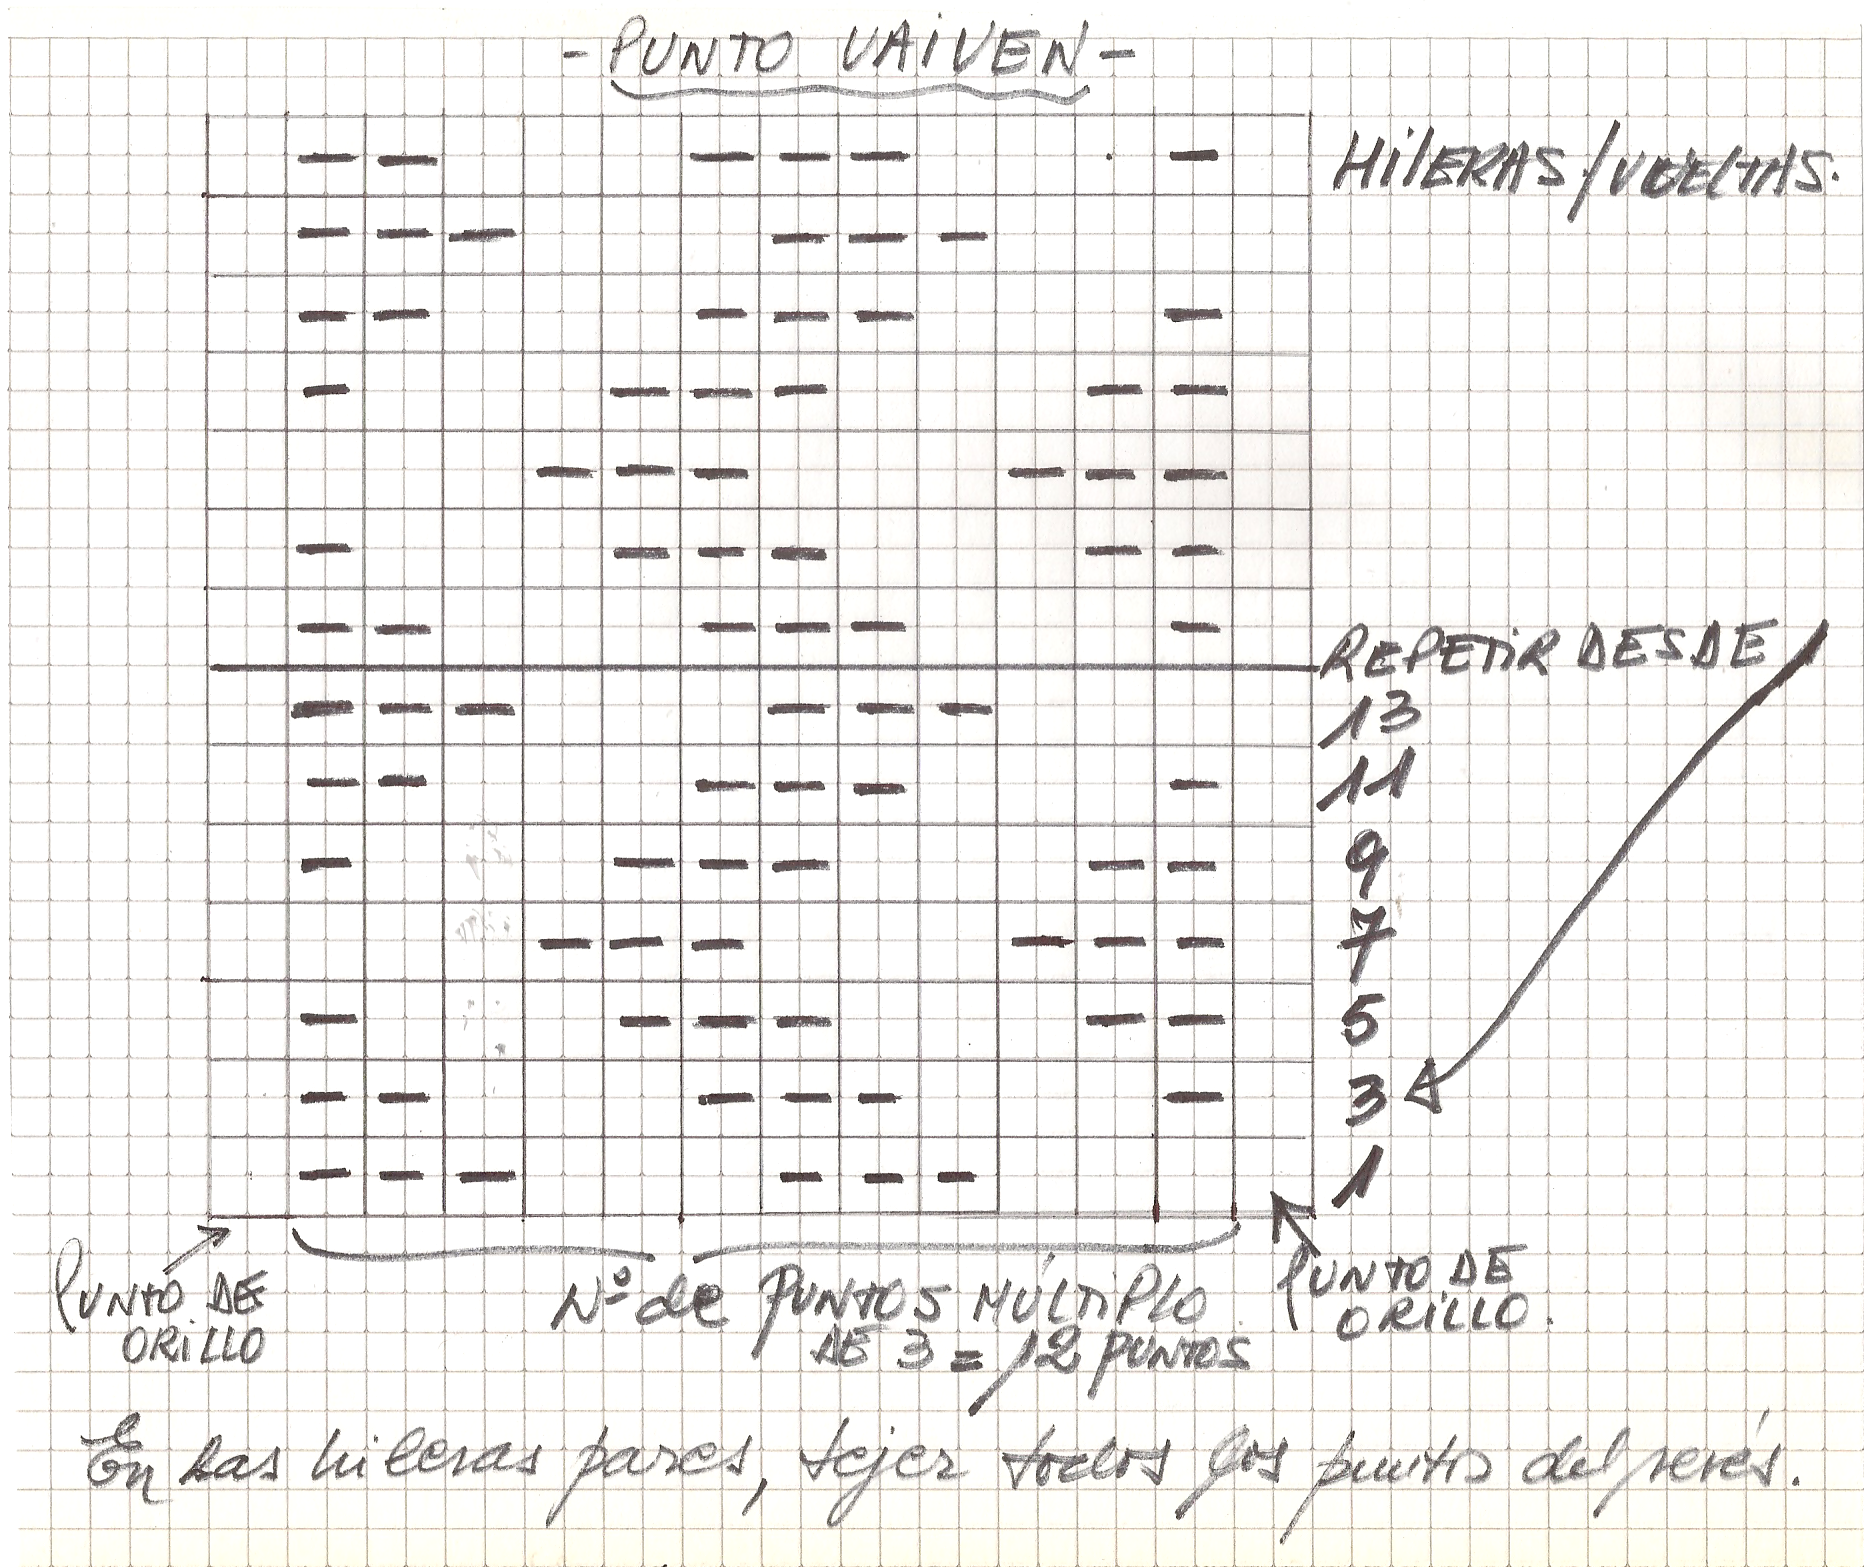 - PUNTO VAIVEN -
HilERAS/VUELTAS.
REPETiR DESDE
13
11
9
7
5
3
1
PUNTO DE
ORILLO
Nº de PUNTOS MÚLTIPLO
DE 3 = 12 PUNTOS
PUNTO DE
ORILLO.
En las hileras pares, tejer todos los puntos del revés.